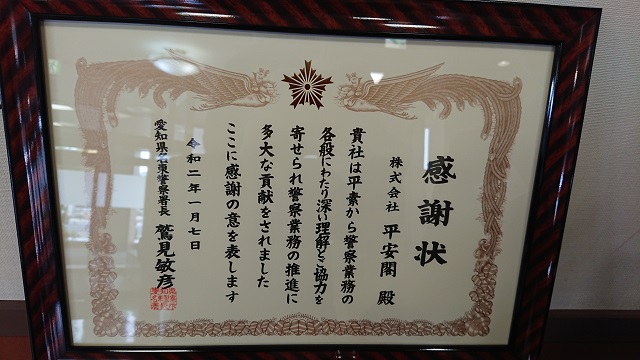 感謝状
株式会社 平安閣 殿
貴社は平素から警察業務の
各般にわたり深い理解とご協力を
寄せられ警察業務の推進に
多大な貢献をされました
ここに感謝の意を表します
令和二年一月七日
愛知県名東警察署長 鷲見敏彦